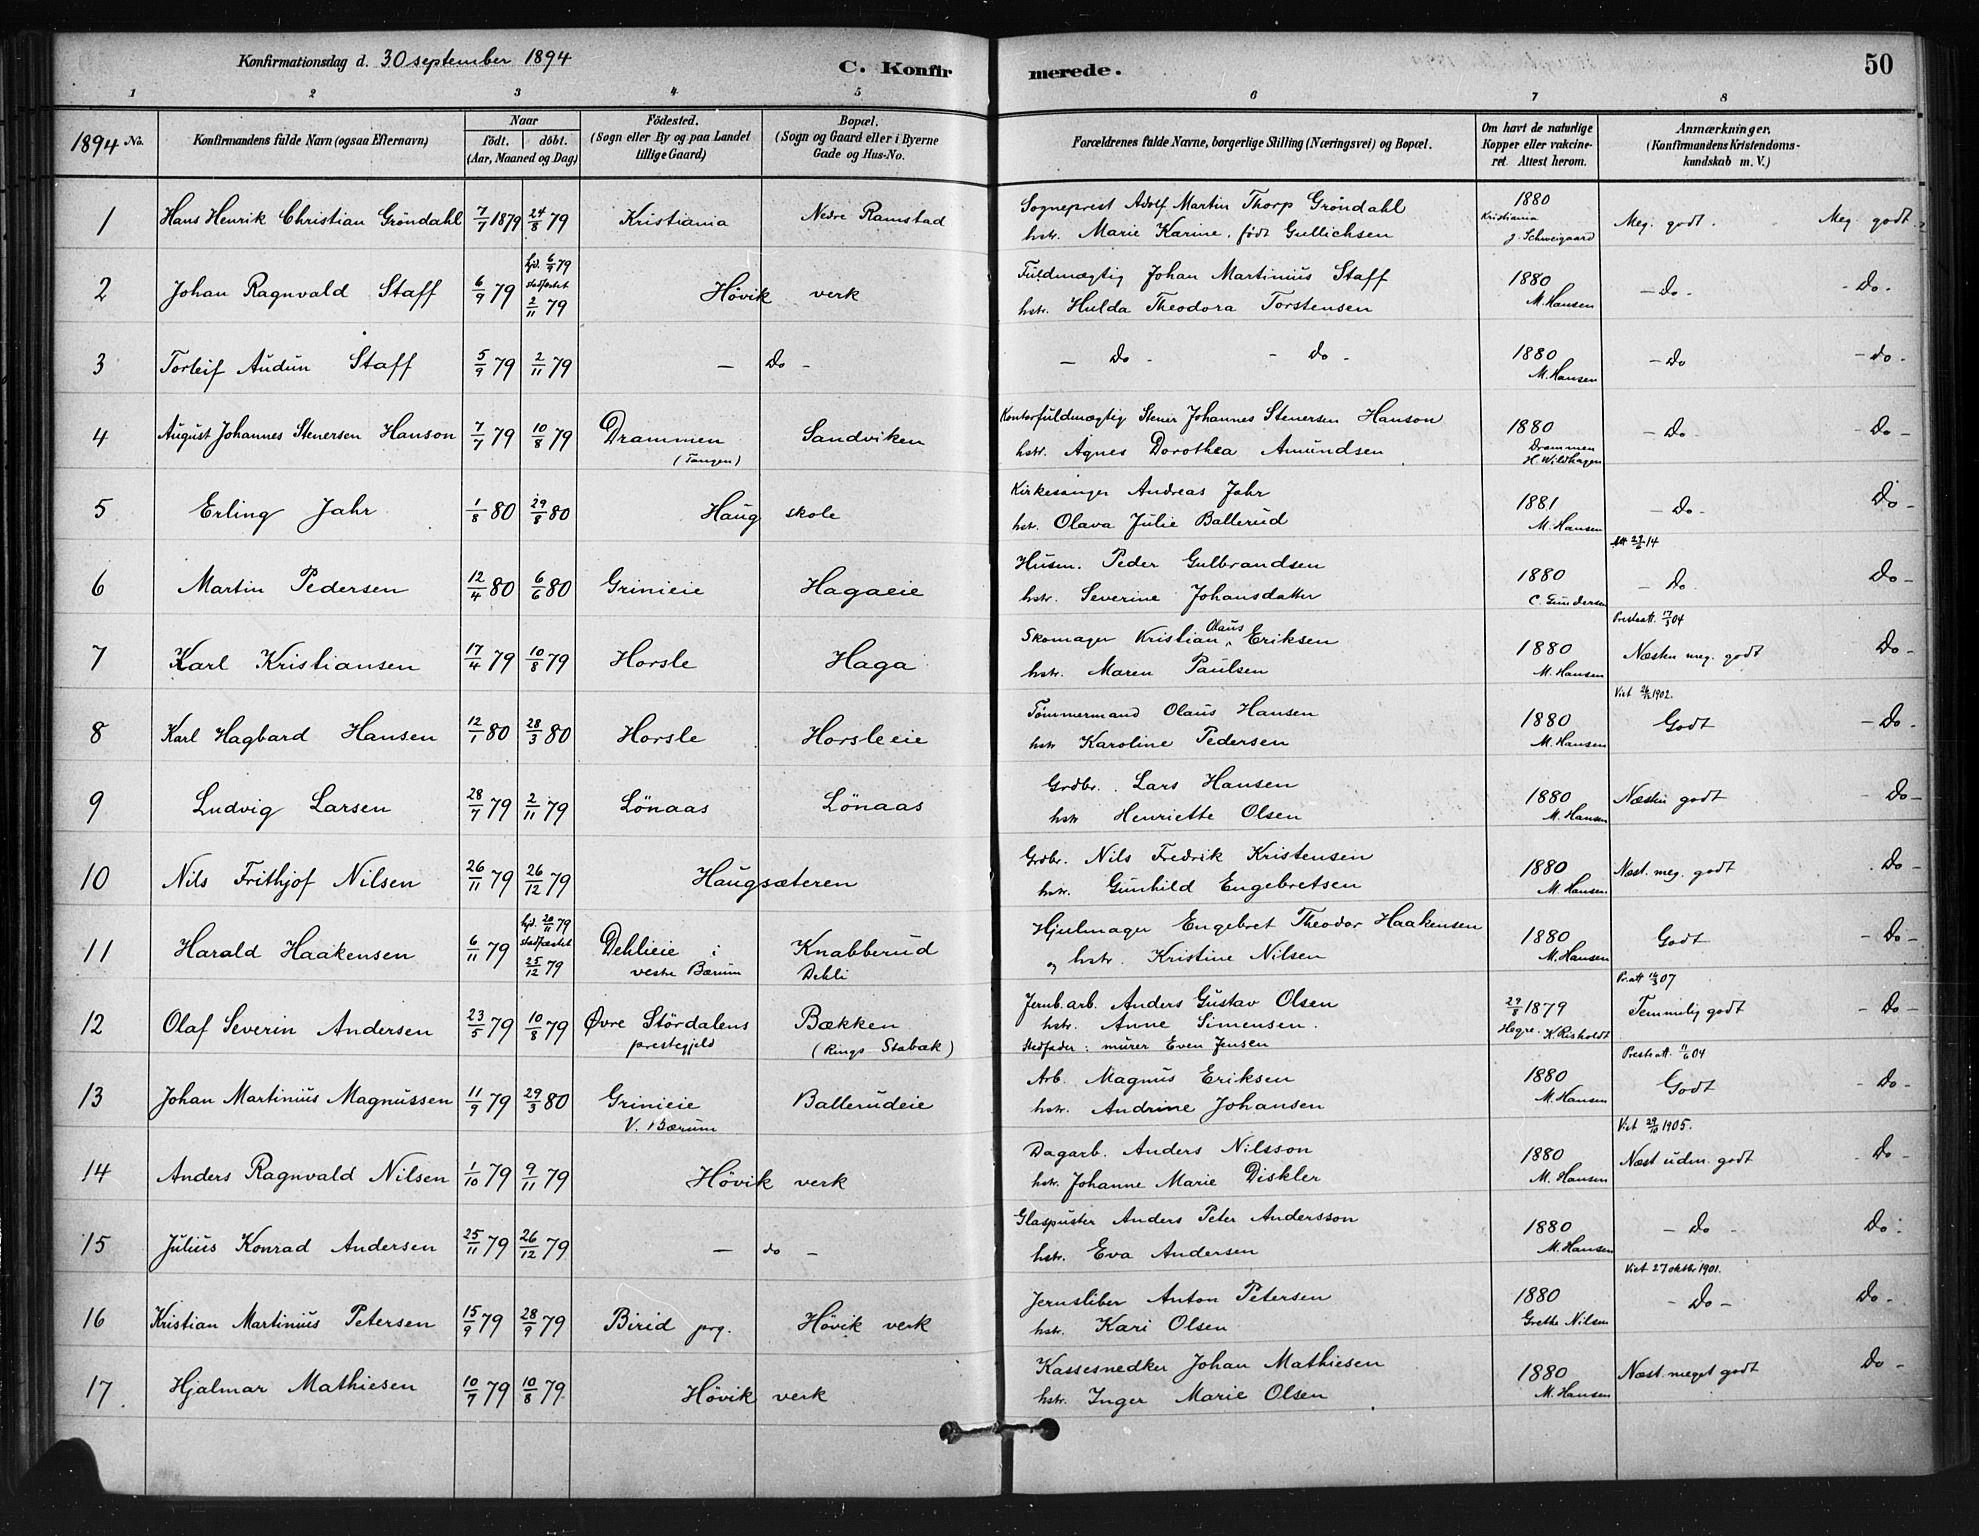 Konfirmationsdag d. 30 september 1894
C. Konfirmerede.
50
1 2 3 4 5 6 7 8
1894 No.
Konfirmandens fulde Navn (ogsaa Efternavn)
Naar
födt. döbt.
(Aar, Maaned og Dag)
Födested.
(Sogn eller By og paa Landet
tillige Gaard)
Bopæl.
(Sogn og Gaard eller i Byerne
Gade og Hus-No.
Forældrenes fulde Navne, borgerlige Stilling (Næringsvei) og Bopæl.
Om havt de naturlige
Kopper eller vakcine-
ret. Attest herom.
Anmærkninger.
(Konfirmandens Kristendoms-
kundskab m. V.)
1 Hans Henrik Christian Gröndahl 7/7 1879 24/8 79 Kristiania Nedre Ramstad
Sogneprest Adolf Martin Thorp Gröndahl
hstr. Marie Karine, født Gullichsen
1880
Kristiania
J. Schweigaard
Meg. godt. Meg. godt.
2 Johan Ragnvald Staff 6/9 79 hjd. 6/9 79
stadfæstet
2/11 79
Hövik verk
Fuldmægtig Johan Martinius Staff
hstr. Hulda Theodora Torstensen
1880
M. Hansen
- Do - - Do.
3 Torleif Audun Staff 5/9 79 2/11 79 - Do -
- Do - - Do -
1880
M. Hansen
- Do - do.
4 August Johannes Stenersen Hanson 7/7 79 10/8 79 Drammen
(Tangen)
Sandviken
Kontorfuldmægtig Stener Johannes Stenersen Hanson
hstr. Agnes Dorothea Amundsen
1880
Drammen
H. Wildhagen
- Do - - Do -
5 Erling Jahr 1/8 80 29/8 80 Haug skole
Kirkesanger Andreas Jahr
hstr. Olava Julie Ballerud
1881
M. Hansen
- Do - Do -
6 Martin Pedersen 12/4 80 6/6 80 Grinieie Hagaeie
Husm. Peder Gulbrandsen
hstr. Severine Johansdatter
1880
C. Gundersen
- Do - Do -
7 Karl Kristiansen 17/4 79 10/8 79 Horsle Haga
Skomager Kristian Olaus Eriksen
hstr. Maren Paulsen
1880
M. Hansen
Næsten meg. godt Do -
8 Karl Hagbard Hansen 12/1 80 28/3 80 Horsle Horsleeie
Tömmermand Olaus Hansen
hstr Karoline Pedersen
1880
M. Hansen
Godt - Do -
9 Ludvig Larsen 28/7 79 2/11 79 Lönaas Lönaas
Grdbr. Lars Hansen
hstr Henriette Olsen
1880
M. Hansen
Næsten godt - Do -
10 Nils Frithjof Nilsen 26/11 79 26/12 79 Haugsæteren
Grdbr. Nils Fredrik Kristensen
hstr. Gunhild Engebretsen
1880
M. Hansen
Næst. meg. godt Do -
11 Harald Haakensen 6/11 79 hjd. 20/11 79
stadfæstet
25/12 79
Dehlieie i
vestre Bærum
Knabberud
Dehli
Hjulmager Engebret Theodor Haakensen
og hstr. Kristine Nilsen
1880
M. Hansen
Godt - Do -
12 Olaf Severin Andersen 23/5 79 10/8 79 Övre Stördalens
prestegjeld
Bækken
(Rings Stabæk)
Jernb.arb. Anders Gustav Olsen
hstr. Anne Simensen.
Stedfader: murer Even Jensen
29/8 1879
Hegre. K. Risholdt
Temmelig godt - Do -
13 Johan Martinius Magnussen 11/9 79 29/3 80 Grinieie
V. Bærum
Ballerudeie
Arb. Magnus Eriksen
hstr. Andrine Johansen
1880
M. Hansen
Godt - Do -
14 Anders Ragnvald Nilsen 1/10 79 9/11 79 Hövik verk
Dagarb. Anders Nilsson
hstr. Johanne Marie Diskler
1880
M. Hansen
Viet 29/10 1905.
Næst udm. godt Do -
15 Julius Konrad Andersen 25/11 79 26/12 79 - do -
Glaspuster Anders Peter Andersson
hstr. Eva Andersen
1880
M. Hansen
- Do - Do.
16 Kristian Martinius Petersen 15/9 79 28/9 79 Birid prg. Hövik verk
Jernsliber Anton Petersen
hstr. Kari Olsen
1880
Grethe Nilsen
Viet 27 oktbr 1901.
- Do - Do -
17 Hjalmar Mathiesen 10/7 79 10/8 79 Hövik verk
Kassesnedker Johan Mathiesen
hstr. Inger Marie Olsen
1880
M. Hansen
Næst. meget godt Do -